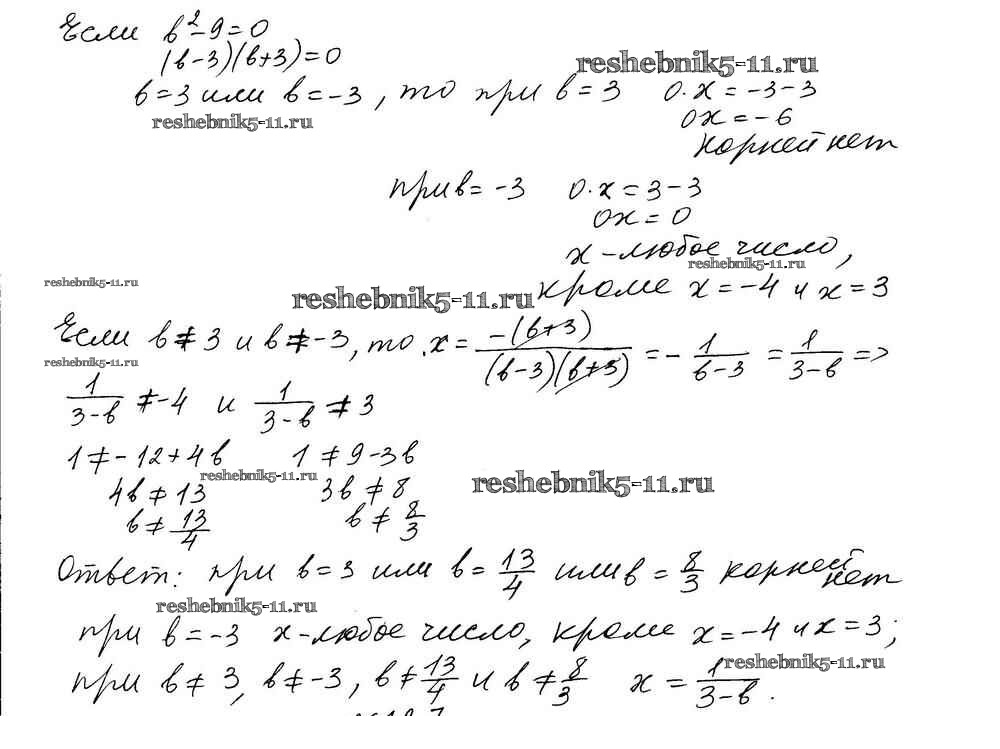 Если в²-9=0
(в-3)(в+3)=0
reshebnik5-11.ru
в=3 или в=-3, то при в=3 0·x=-3-3
reshebnik5-11.ru
0x=-6
корней нет
при в=-3 0·x=3-3
0x=0
x-любое число,
reshebnik5-11.ru
reshebnik5-11.ru
reshebnik5-11.ru
кроме x=-4 и x=3
Если в≠3 и в≠-3, то x=-(в+3)/(в-3)(в+3)=-1/(в-3)=1/(3-в)=>
reshebnik5-11.ru
1/(3-в)≠-4 и 1/(3-в)≠3
1≠-12+4в 1≠9-3в
reshebnik5-11.ru
reshebnik5-11.ru
4в≠13 3в≠8
в≠13/4 в≠8/3
Ответ: при в=3 или в=13/4 или в=8/3 корней нет
reshebnik5-11.ru
при в=-3 x-любое число, кроме x=-4 и x=3;
reshebnik5-11.ru
при в≠3, в≠-3, в≠13/4 и в≠8/3 x=1/(3-в).